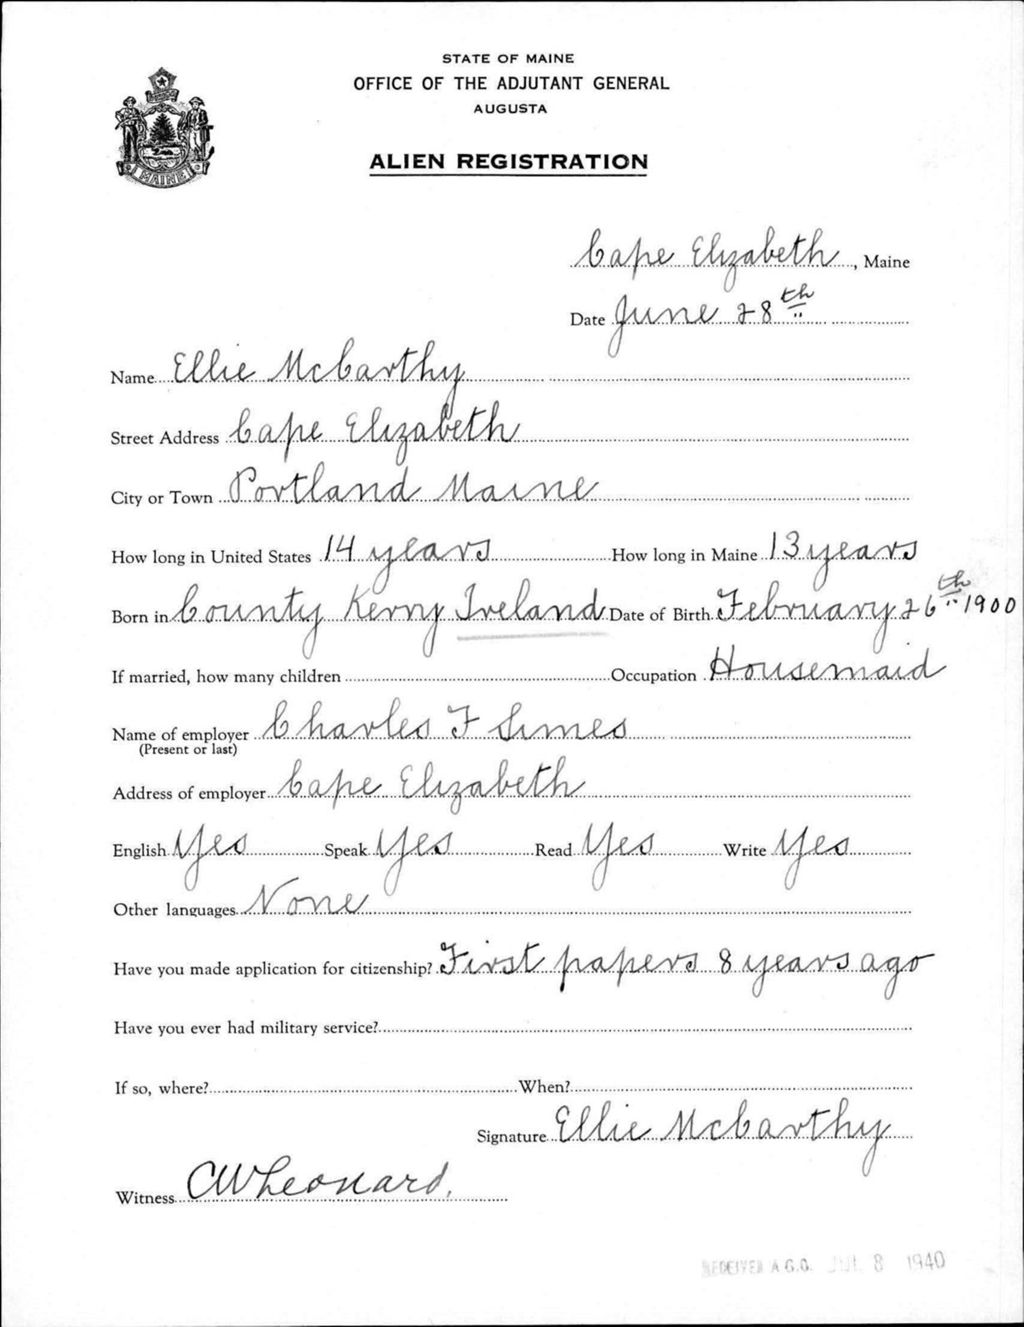 STATE OF MAINE
OFFICE OF THE ADJUTANT GENERAL
AUGUSTA
ALIEN REGISTRATION
MAINE
Cape Elizabeth, Maine
Date June 28th
Name Ellie McCarthy
Street Address Cape Elizabeth
City or Town Portland Maine
How long in United States 14 years How long in Maine 13 years
Born in County Kerry Ireland Date of Birth February 26th 1900
If married, how many children Occupation Housemaid
Name of employer Charles F Simes
(Present or last)
Address of employer Cape Elizabeth
English Yes Speak Yes Read Yes Write Yes
Other languages None
Have you made application for citizenship? First papers 8 years ago
Have you ever had military service?
If so, where? When?
Signature Ellie McCarthy
Witness CW Leonard.
RECEIVED A.G.O. JUL 8 1940